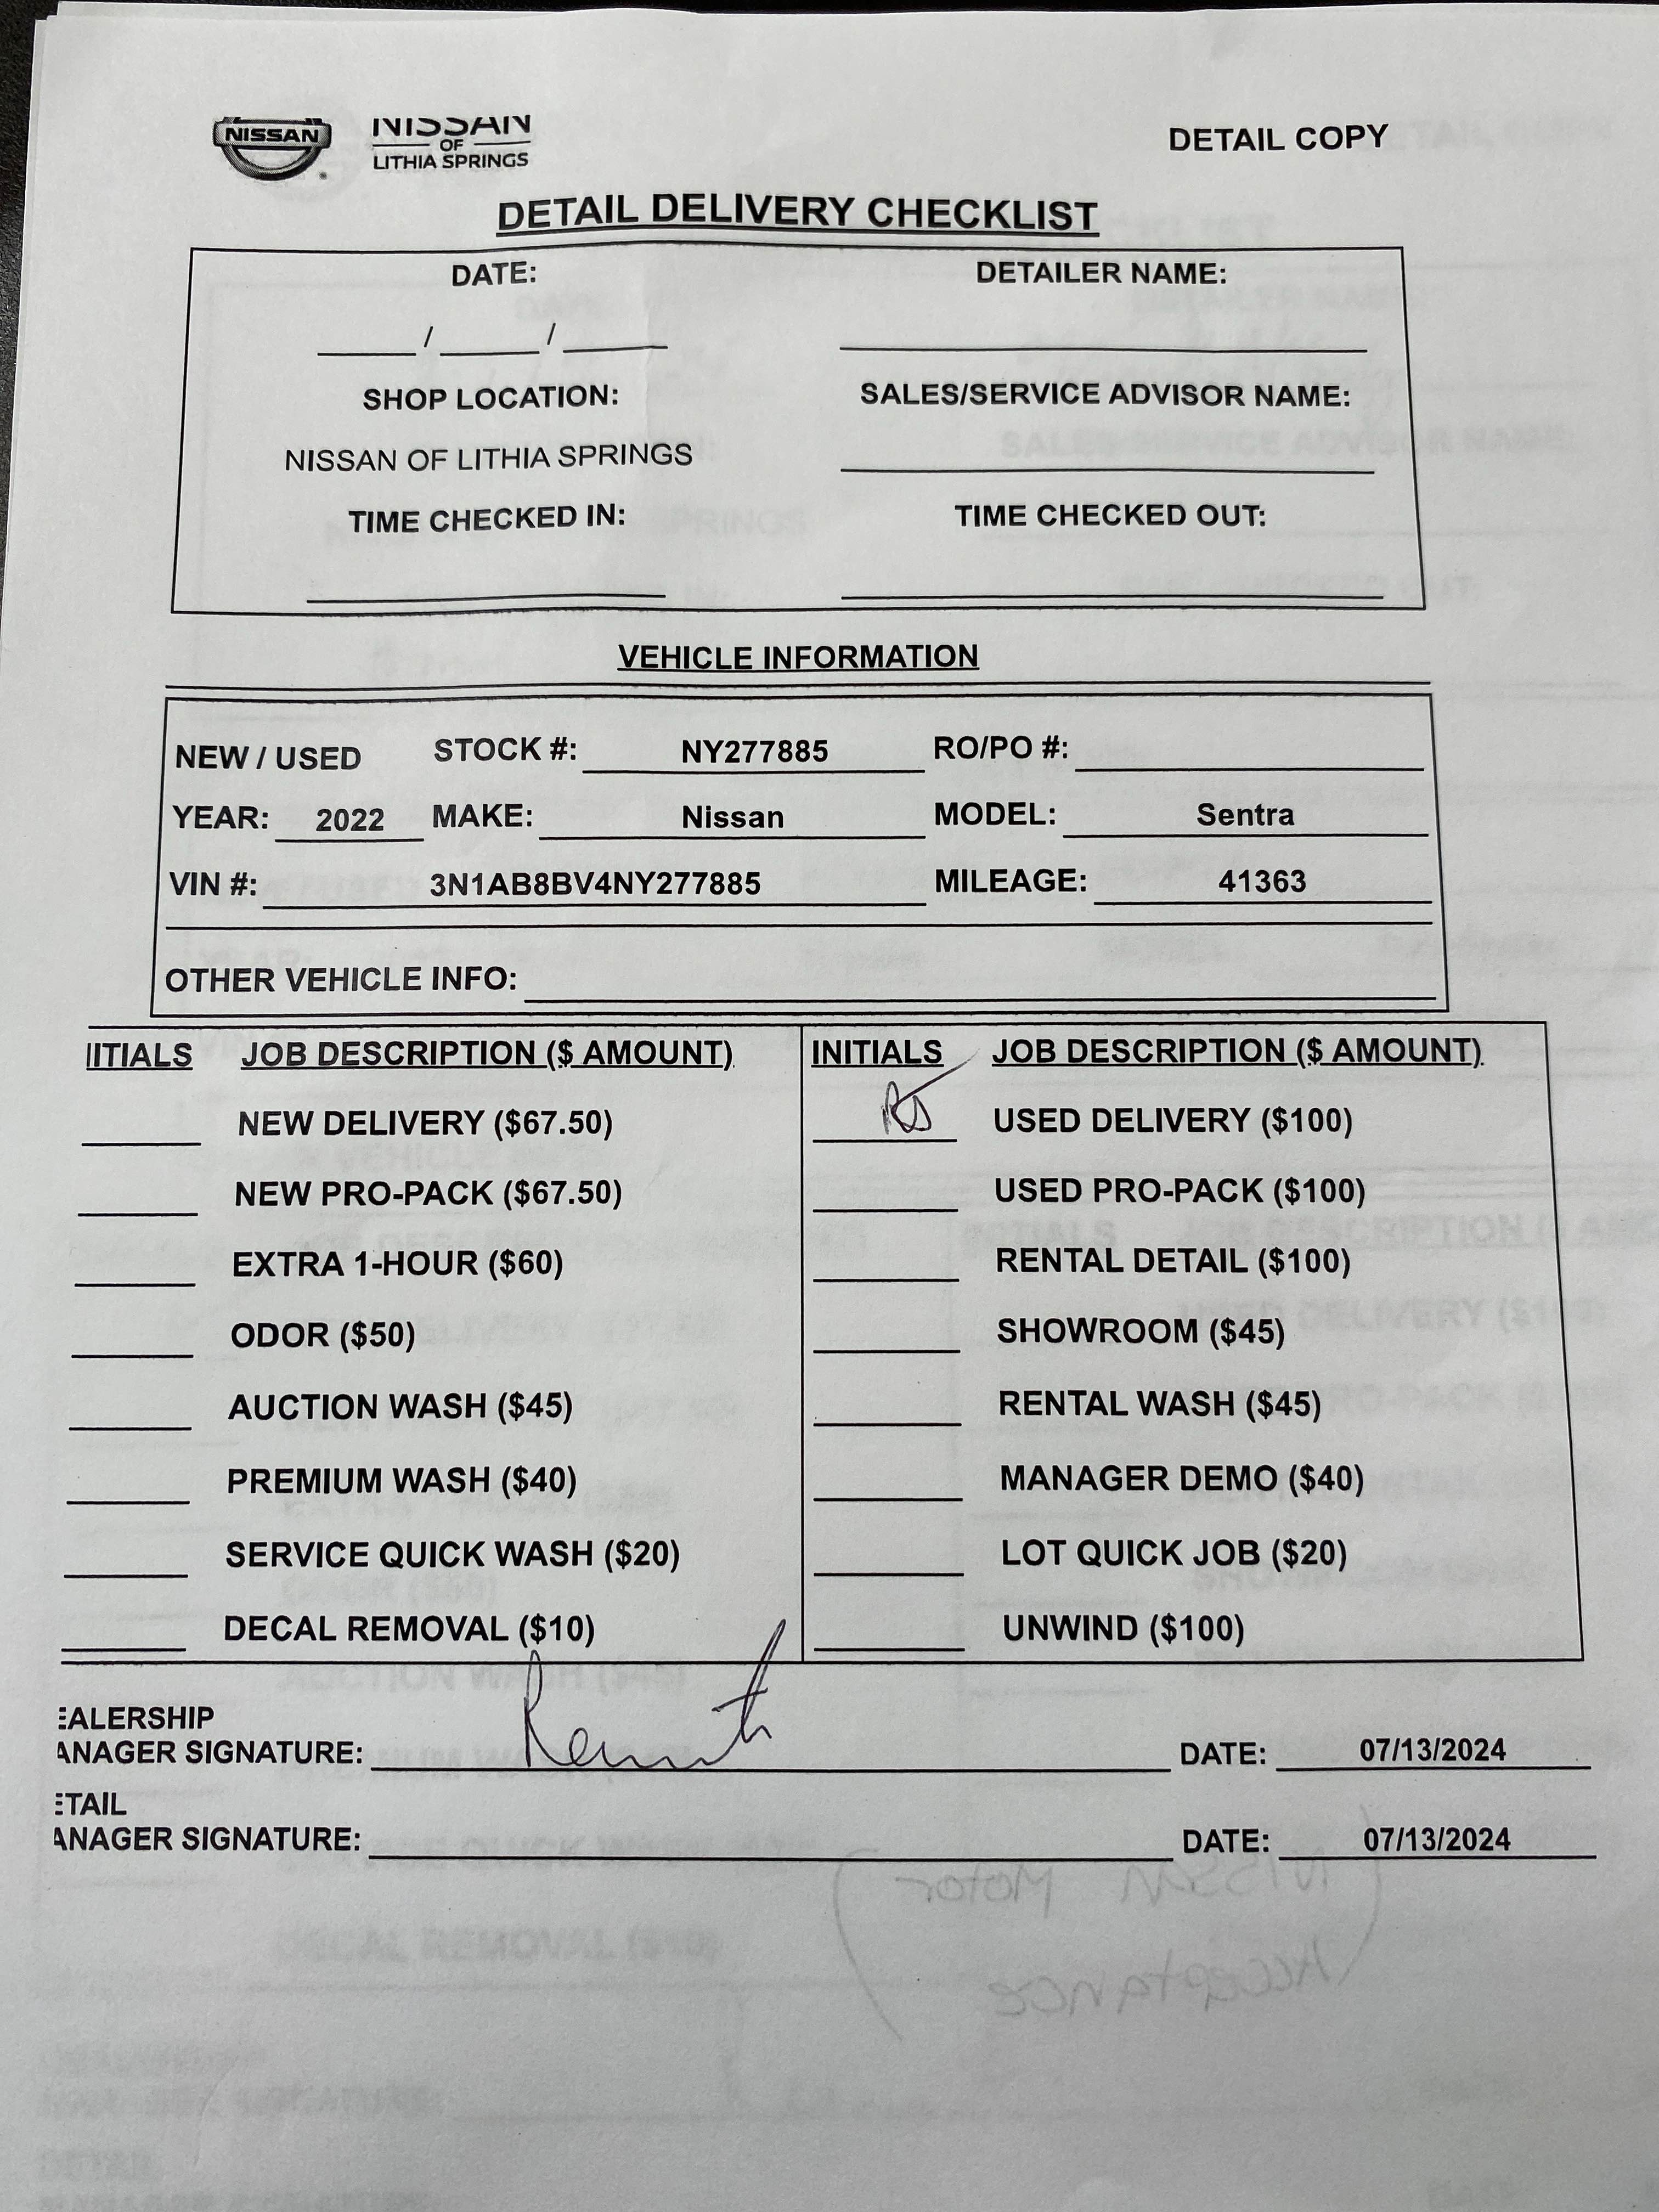 NISSAN
NISSAN
OF
LITHIA SPRINGS
DETAIL COPY
DETAIL DELIVERY CHECKLIST
DATE: DETAILER NAME:
____/____/____ ____
SHOP LOCATION: SALES/SERVICE ADVISOR NAME:
NISSAN OF LITHIA SPRINGS
TIME CHECKED IN: TIME CHECKED OUT:
VEHICLE INFORMATION
NEW / USED STOCK #: NY277885 RO/PO #:
YEAR: 2022 MAKE: Nissan MODEL: Sentra
VIN #: 3N1AB8BV4NY277885 MILEAGE: 41363
OTHER VEHICLE INFO:
IITIALS JOB DESCRIPTION ($ AMOUNT) INITIALS JOB DESCRIPTION ($ AMOUNT)
NEW DELIVERY ($67.50) RS USED DELIVERY ($100)
NEW PRO-PACK ($67.50) USED PRO-PACK ($100)
EXTRA 1-HOUR ($60) RENTAL DETAIL ($100)
ODOR ($50) SHOWROOM ($45)
AUCTION WASH ($45) RENTAL WASH ($45)
PREMIUM WASH ($40) MANAGER DEMO ($40)
SERVICE QUICK WASH ($20) LOT QUICK JOB ($20)
DECAL REMOVAL ($10) UNWIND ($100)
EALERSHIP
ANAGER SIGNATURE: DATE: 07/13/2024
ETAIL
ANAGER SIGNATURE: DATE: 07/13/2024
(Nissan Motor
Acceptance)